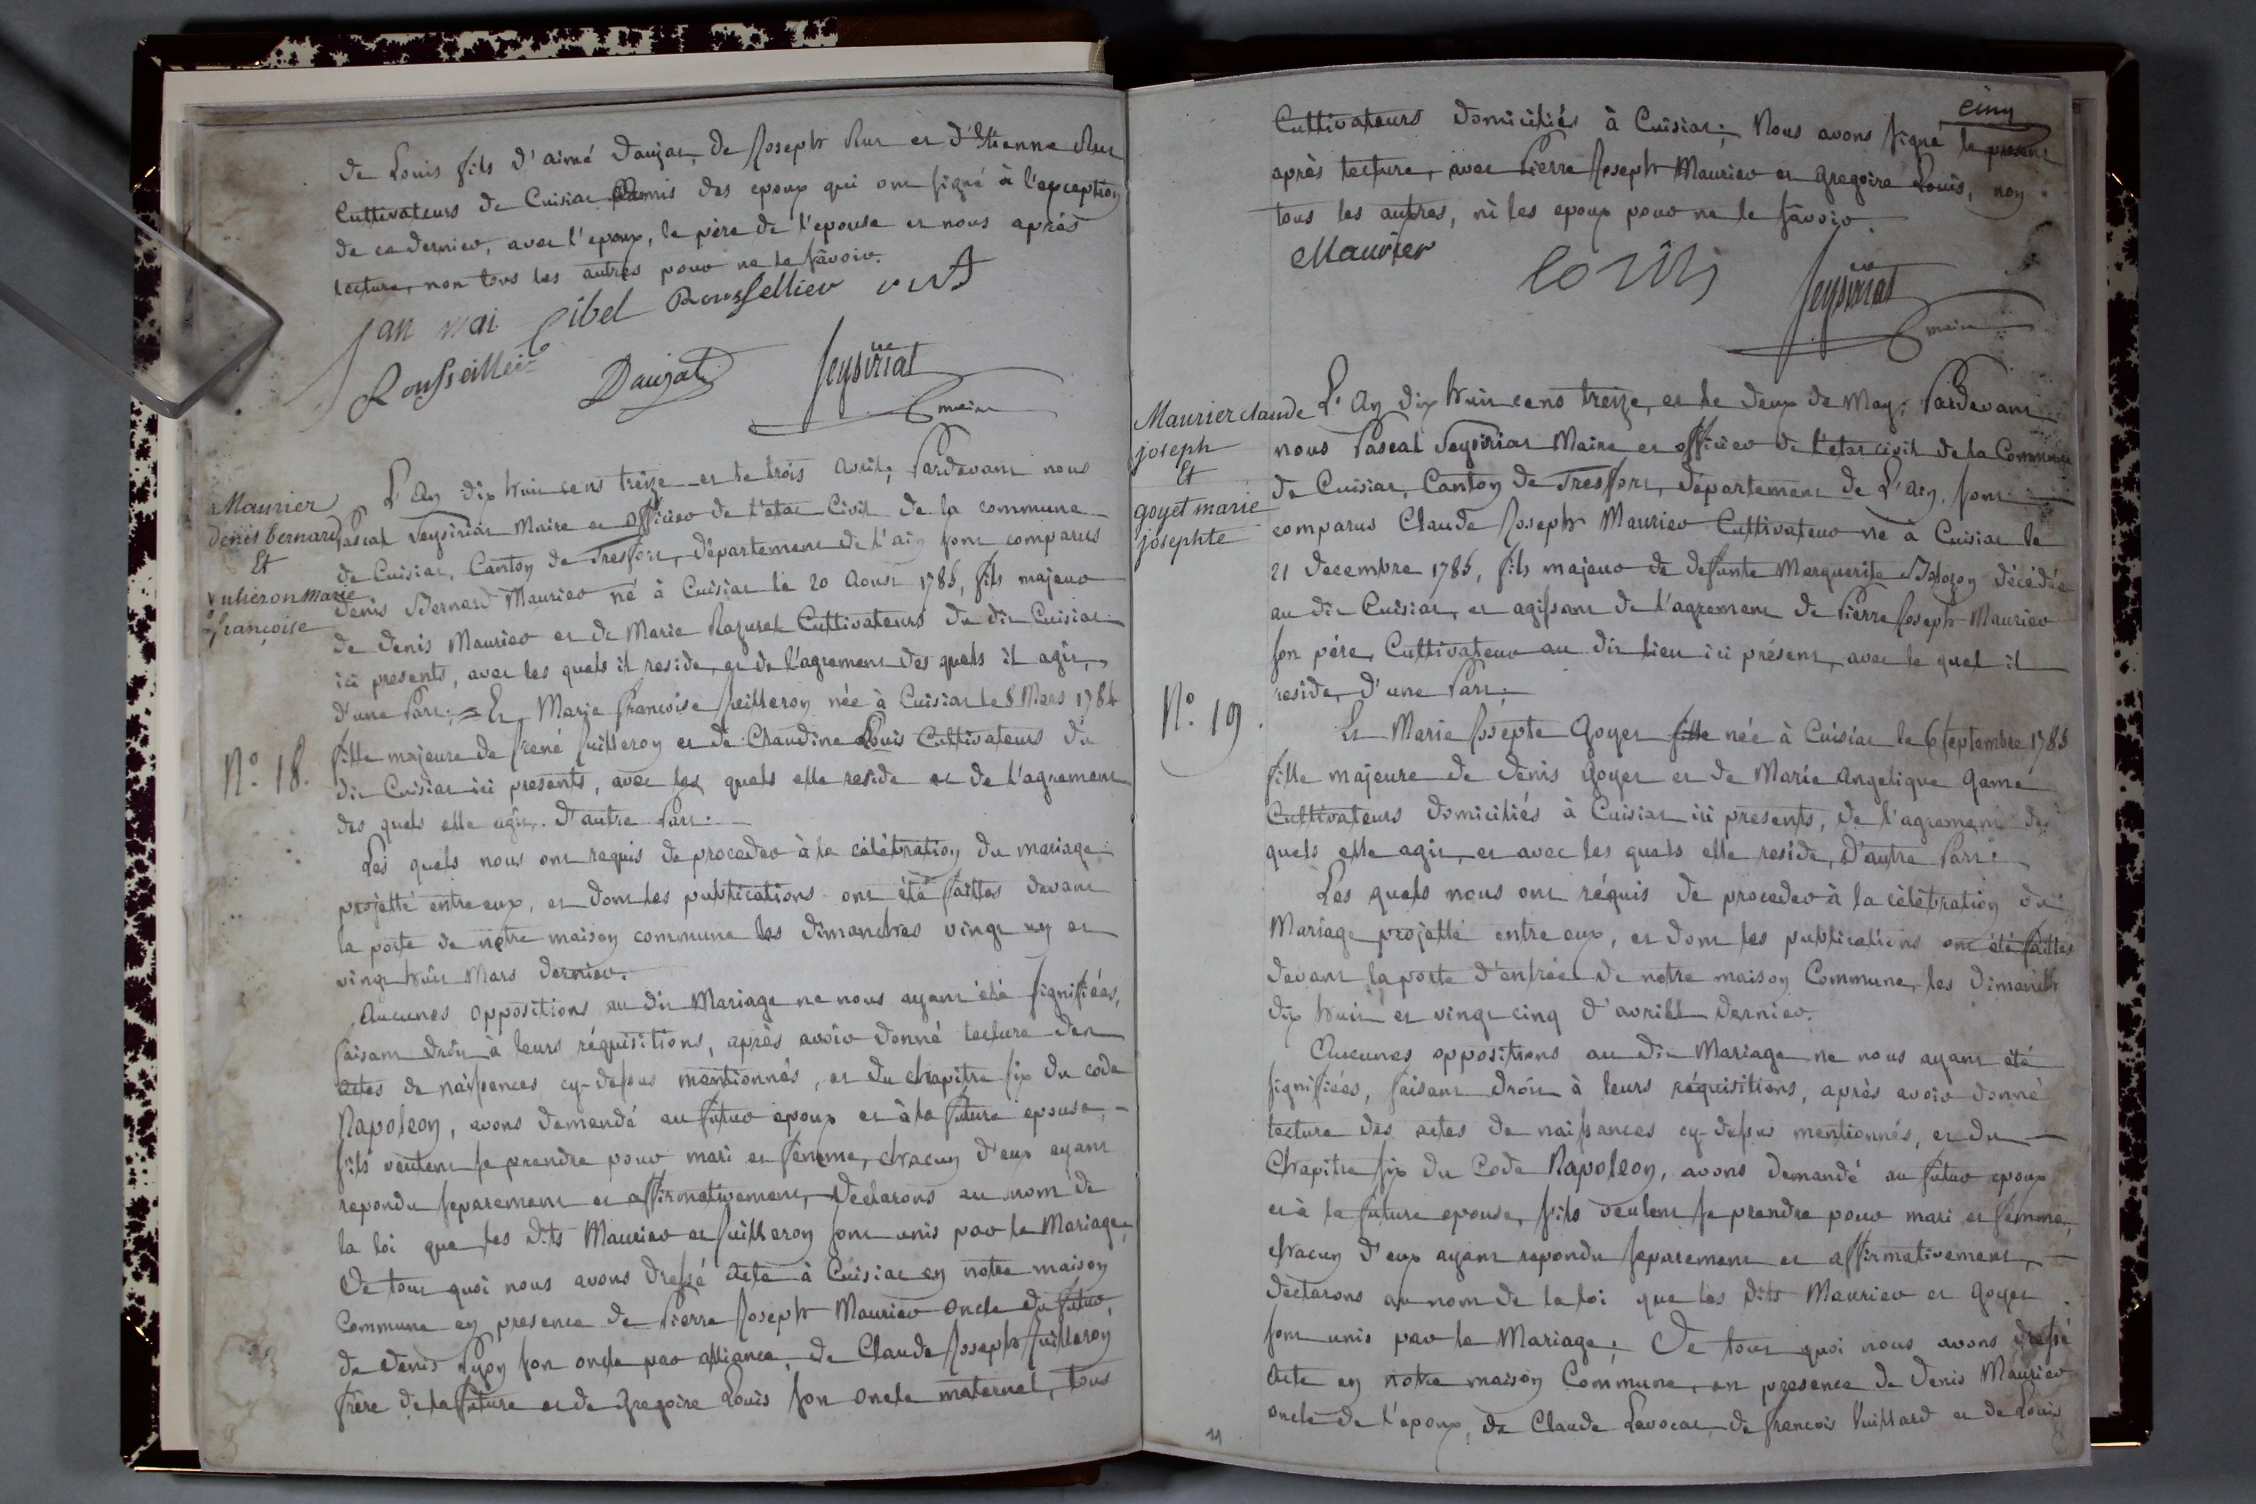 de Louis fils d'aimé Daujat, de Joseph Rut et d'Etienne Rut
Cultivateurs de Cuisiat amis des epoux qui ont signé à l'exception
de ce dernier, avec l'epoux, le père de l'epouse et nous après
lecture, non tous les autres pour ne le sâvoir.
Jan mai Cibel Roussellier rut
Rousseillier Daujat Seysiriat
maire
Maurier
denis bernard
Et
vulieron marie
françoise
N.° 18.
L'An dix huit cens treize et le trois avril; Pardevant nous
Pascal Seysiriat Maire et officier de l'état Civil de la commune
de Cuisiat, Canton de Tresfort, département de l'ain sont comparus
denis Bernard Maurier né à Cuisiat le 20 Aoust 1785, fils majeur
de denis Maurier et de Marie Razurel Cultivateurs du dit Cuisiat
ici presents, avec les quels il reside et de l'agrement des quels il agit,
d'une Part; = Et Marie françoise fuilleron née à Cuisiat le 8 Mars 1784
fille majeure de frené fuilleron et de Claudine Louis Cultivateurs du
dit Cuisiat ici presents, avec les quels elle reside et de l'agrement
des quels elle agit. D'autre Part.
Les quels nous ont requis de proceder à la célébration du mariage
projetté entre eux, et dont les publications ont été faittes devant
la porte de nôtre maison commune les dimanches vingt un et
vingt huit Mars dernier.
Aucunes oppositions au dit Mariage ne nous ayant été signifiées,
faisant droit à leurs réquisitions, après avoir donné lecture des
actes de naissances cy-dessus mentionnés, et du chapitre six du code
Napoleon, avons demandé au futur epoux et à la future epouse,
s'ils veulent se prendre pour mari et femme, chacun d'eux ayant
repondu separement et affirmativement, Declarons au nom de
la loi que les dits Maurier et fuilleron sont unis par le Mariage,
De tout quoi nous avons dressé Acte à Cuisiat en notre maison
Commune en presence de Pierre Joseph Maurier oncle du futur,
de Denis Pyon son oncle par alliance, de Claude Joseph fuilleron
frère de la future et de Gregoire Louis son oncle maternel, tous
cinq
Cultivateurs domiciliés à Cuisiat; Nous avons signé le present
après lecture, avec Pierre Joseph Maurier et Gregoire Louis, non
tous les autres, ni les epoux pour ne le sâvoir.
Maurier Louis Seysiriat
maire
Maurier claude
joseph
Et
goyet marie
josephte
N.° 19.
L'An dix huit cens treize, et le deux de May; Pardevant
nous Pascal Seysiriat Maire et officier de l'état civil de la Commune
de Cuisiat, Canton de Tresfort, département de L'ain, sont
comparus Claude Joseph Maurier Cultivateur né à Cuisiat le
21 decembre 1785, fils majeur de defunte Marguerite décédée
au dit Cuisiat, et agissant de l'agrement de Pierre Joseph Maurier
son père, Cultivateur au dit lieu ici présent, avec le quel il
reside, d'une Part;
Et Marie Josepte Goyet fille née à Cuisiat le 6 septembre 1785
fille majeure de denis Goyet et de Marie Angelique Game
Cultivateurs domiciliés à Cuisiat ici presents, de l'agrement des
quels elle agit, et avec les quels elle reside, D'autre Part.
Les quels nous ont réquis de proceder à la célébration du
Mariage projetté entre eux, et dont les publications ont été faittes
devant la porte d'entrée de notre maison Commune, les dimanch
dix huit et vingt cinq d'avrill dernier.
Aucunes oppositions au dit Mariage ne nous ayant été
signifiées, faisant droit à leurs réquisitions, après avoir donné
lecture des actes de naissances cy-dessus mentionnés, et du
Chapitre six du Code Napoleon, avons demandé au futur epoux
et à la future epouse, s'ils veulent se prendre pour mari et femme,
chacun d'eux ayant repondu separement et affirmativement,
déclarons au nom de la loi que les dits Maurier et Goyet
sont unis par le Mariage; De tout quoi nous avons dressé
Acte en notre maison Commune, en presence de Denis Maurier
oncle de l'epoux, de Claude Lavocat, de françois Vuillard et de Louis
11